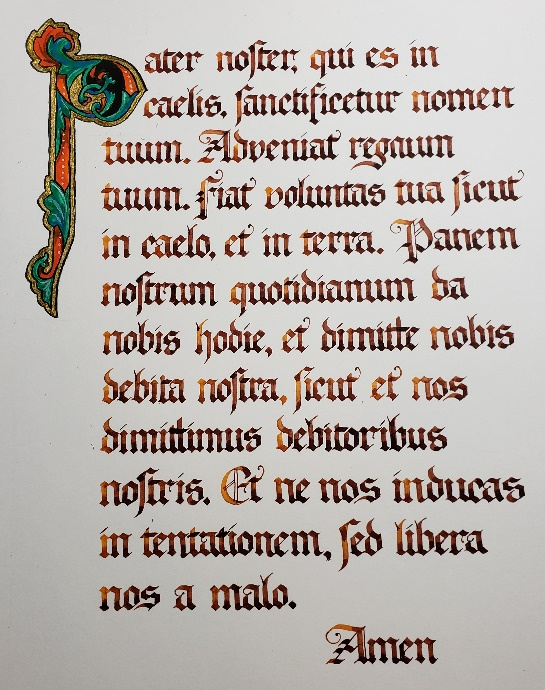 Pater noster, qui es in
caelis, sanctificetur nomen
tuum. Adveniat regnum
tuum. Fiat voluntas tua sicut
in caelo, et in terra. Panem
nostrum quotidianum da
nobis hodie, et dimitte nobis
debita nostra, sicut et nos
dimittimus debitoribus
nostris. Et ne nos inducas
in tentationem, sed libera
nos a malo.
Amen